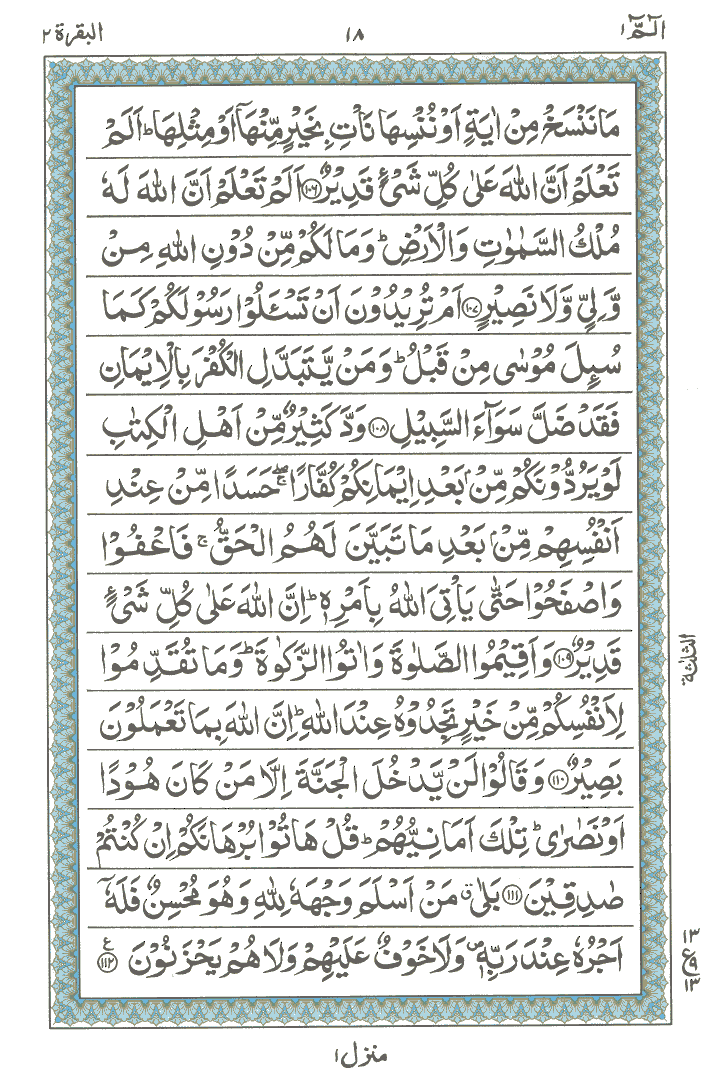 الٓمّٓ ١ ١٨ البقرة ٢
مَا نَنْسَخْ مِنْ اٰيَةٍ اَوْ نُنْسِهَا نَاْتِ بِخَيْرٍ مِّنْهَاۤ اَوْ مِثْلِهَا ؕ اَلَمْ
تَعْلَمْ اَنَّ اللّٰهَ عَلٰى كُلِّ شَیْءٍ قَدِيْرٌ ﴿۱۰۶﴾ اَلَمْ تَعْلَمْ اَنَّ اللّٰهَ لَهٗ
مُلْكُ السَّمٰوٰتِ وَالْاَرْضِ ؕ وَمَا لَكُمْ مِّنْ دُوْنِ اللّٰهِ مِنْ
وَّلِیٍّ وَّلَا نَصِيْرٍ ﴿۱۰۷﴾ اَمْ تُرِيْدُوْنَ اَنْ تَسْـَٔلُوْا رَسُوْلَكُمْ كَمَا
سُىِٕلَ مُوْسٰى مِنْ قَبْلُ ؕ وَمَنْ يَّتَبَدَّلِ الْكُفْرَ بِالْاِيْمَانِ
فَقَدْ ضَلَّ سَوَآءَ السَّبِيْلِ ﴿۱۰۸﴾ وَدَّ كَثِيْرٌ مِّنْ اَهْلِ الْكِتٰبِ
لَوْ يَرُدُّوْنَكُمْ مِّنْۢ بَعْدِ اِيْمَانِكُمْ كُفَّارًا ۖۚ حَسَدًا مِّنْ عِنْدِ
اَنْفُسِهِمْ مِّنْۢ بَعْدِ مَا تَبَيَّنَ لَهُمُ الْحَقُّ ۚ فَاعْفُوْا
وَاصْفَحُوْا حَتّٰى يَاْتِیَ اللّٰهُ بِاَمْرِهٖ ؕ اِنَّ اللّٰهَ عَلٰى كُلِّ شَیْءٍ
قَدِيْرٌ ﴿۱۰۹﴾ وَاَقِيْمُوا الصَّلٰوةَ وَاٰتُوا الزَّكٰوةَ ؕ وَمَا تُقَدِّمُوْا
لِاَنْفُسِكُمْ مِّنْ خَيْرٍ تَجِدُوْهُ عِنْدَ اللّٰهِ ؕ اِنَّ اللّٰهَ بِمَا تَعْمَلُوْنَ
بَصِيْرٌ ﴿۱۱۰﴾ وَقَالُوْا لَنْ يَّدْخُلَ الْجَنَّةَ اِلَّا مَنْ كَانَ هُوْدًا
اَوْ نَصٰرٰى ؕ تِلْكَ اَمَانِيُّهُمْ ؕ قُلْ هَاتُوْا بُرْهَانَكُمْ اِنْ كُنْتُمْ
صٰدِقِيْنَ ﴿۱۱۱﴾ بَلٰى ۗ مَنْ اَسْلَمَ وَجْهَهٗ لِلّٰهِ وَهُوَ مُحْسِنٌ فَلَهٗۤ
اَجْرُهٗ عِنْدَ رَبِّهٖ ۪ وَلَا خَوْفٌ عَلَيْهِمْ وَلَا هُمْ يَحْزَنُوْنَ ﴿۱۱۲﴾ ع
الثلثة
١٣
ع ٩
١٣
منزل ١